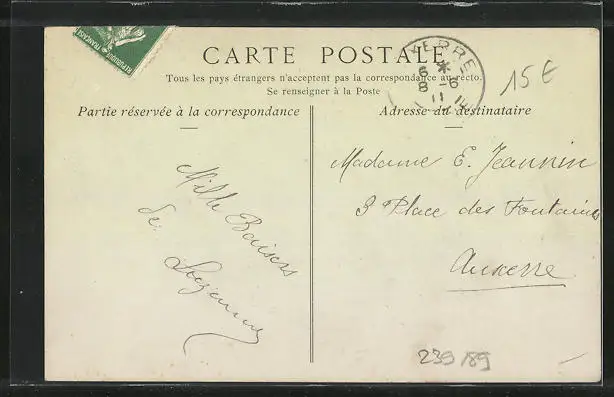 RÉPUBLIQUE FRANÇAISE
CARTE POSTALE
Tous les pays étrangers n'acceptent pas la correspondance au recto.
Se renseigner à la Poste
15 €
Partie réservée à la correspondance
Adresse du destinataire
Mille Baisers
de
Suzanne
Madame E. Jeannin
3 Place des Fontaines
Auxerre
239/89